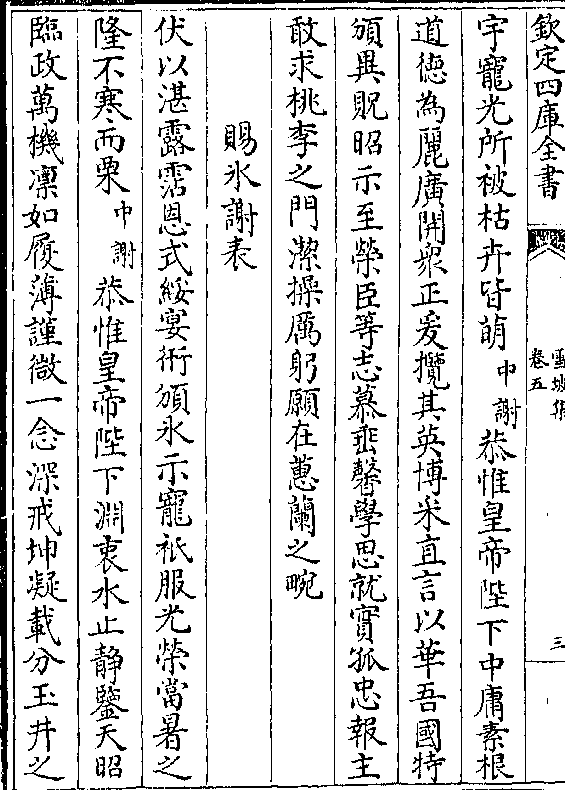 欽定四庫全書
雪坡集
卷五
三
宇寵光所被枯卉皆萌中謝恭惟皇帝陛下中庸素根
道德為麗廣開衆正爰攬其英博采直言以華吾國特
頒異貺昭示至榮臣等志慕垂馨學思就實孤忠報主
敢求桃李之門潔操厲躬願在蕙蘭之畹
賜氷謝表
伏以湛露霑恩式綏宴衎頒氷示寵祇服光榮當暑之
隆不寒而栗中謝恭惟皇帝陛下淵衷水止靜鑒天昭
臨政萬機凛如履薄謹微一念深戒坤凝載分玉井之